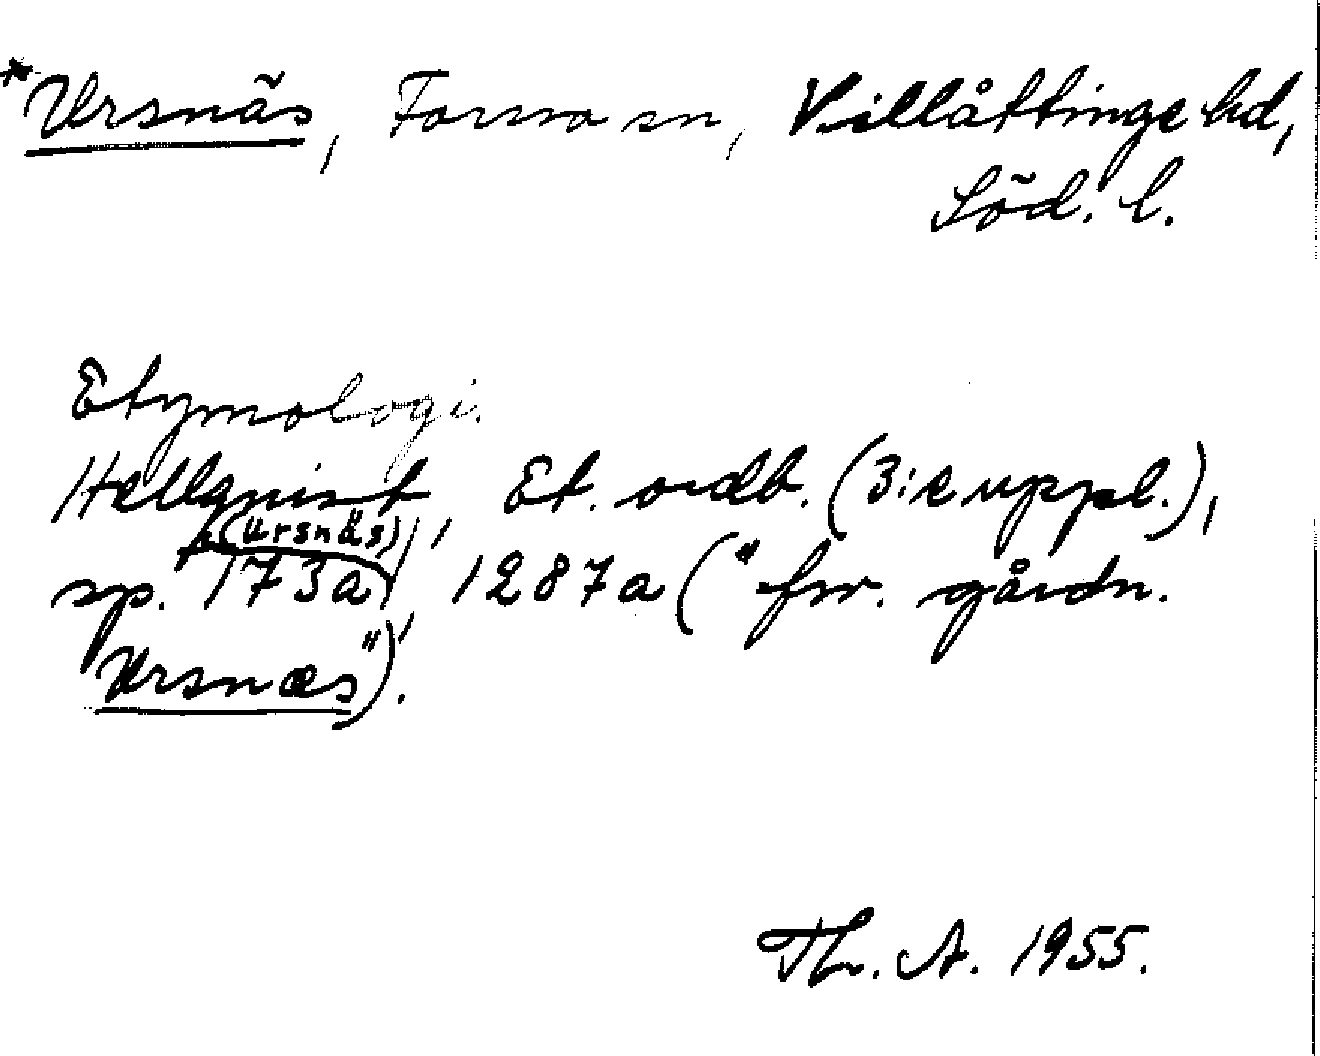 *Ursnäs, Forssa sn, Villåttinge hd,
Söd. l.
Etymologi.
Hellquist, Et. ordb. (3:e uppl.),
(Ursnäs)
sp. 173a, 1287a ("fsv. gårdn.
Ursnæs").
Th. A. 1955.